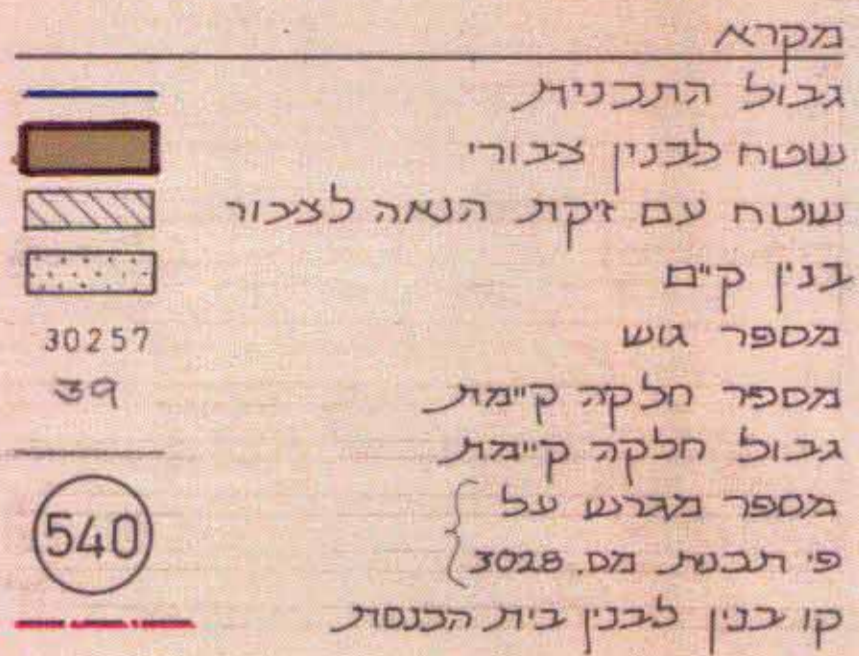 מקרא
גבול התכנית
שטח לבנין צבורי
שטח עם זיקת הנאה לצבור
בנין קיים
מספר גוש 30257
מספר חלקה קיימת 39
גבול חלקה קיימת
מספר מגרש על
פי תכנית מס. 3028 540
קו בנין לבנין בית הכנסת